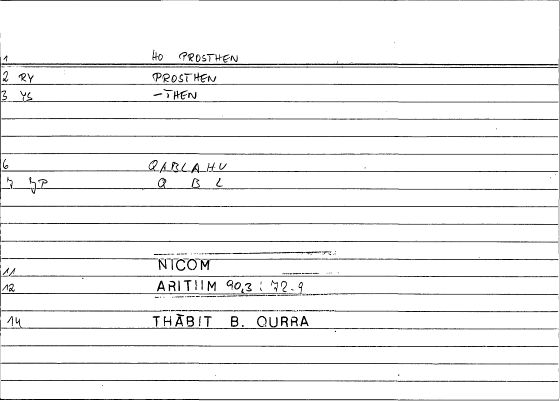 1 HO PROSTHEN
2 RY PROSTHEN
3 YS -THEN
6 QABLAHU
7 JP Q B L
11 NICOM
12 ARITHM 90,3 : 72.9
14 THĀBIT B. QURRA